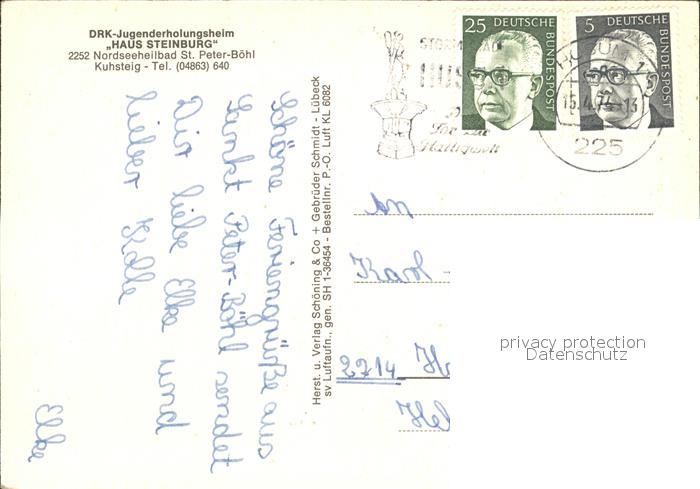 DRK-Jugenderholungsheim
„HAUS STEINBURG"
2252 Nordseeheilbad St. Peter-Böhl
Kuhsteig - Tel. (04863) 640
Schöne Feriengrüße aus
Sankt Peter-Böhl sendet
Dir liebe Elke und
lieber
Elke
Herst. u. Verlag Schöning & Co + Gebrüder Schmidt - Lübeck
sv Luftaufn., gen. SH 1-36454 - Bestellnr. P.-O. Luft KL 6082
25 DEUTSCHE BUNDESPOST
5 DEUTSCHE BUNDESPOST
HUSUM 1
15.4.74-13
225
An
Karl
2214 H
Hel
privacy protection
Datenschutz